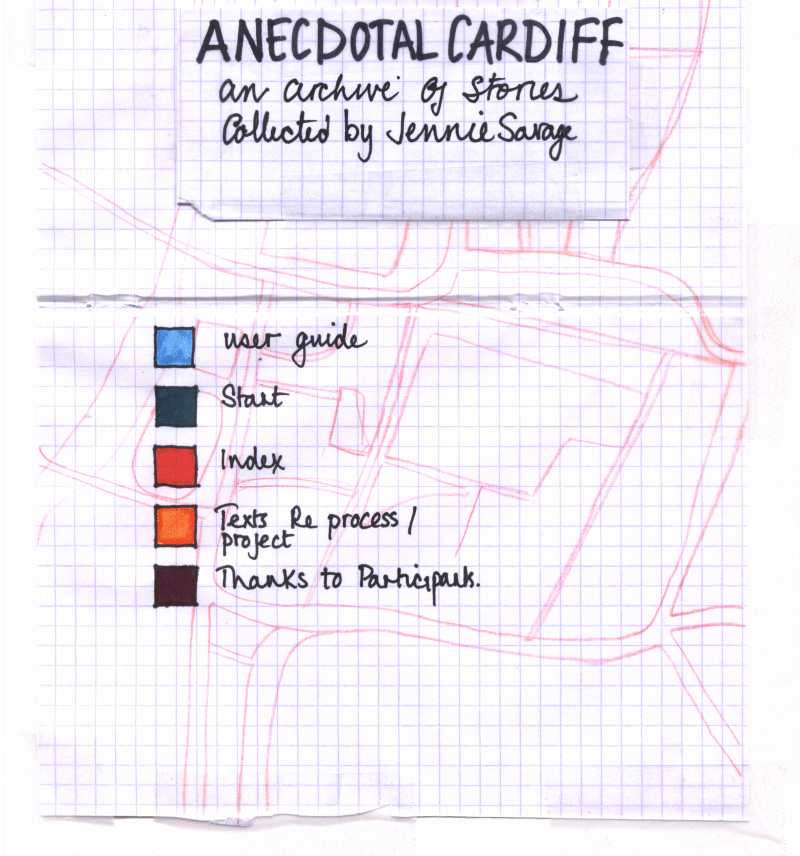 ANECDOTAL CARDIFF
an archive of Stories
Collected by Jennie Savage
user guide
Start
Index
Texts Re process /
project
Thanks to Participants.